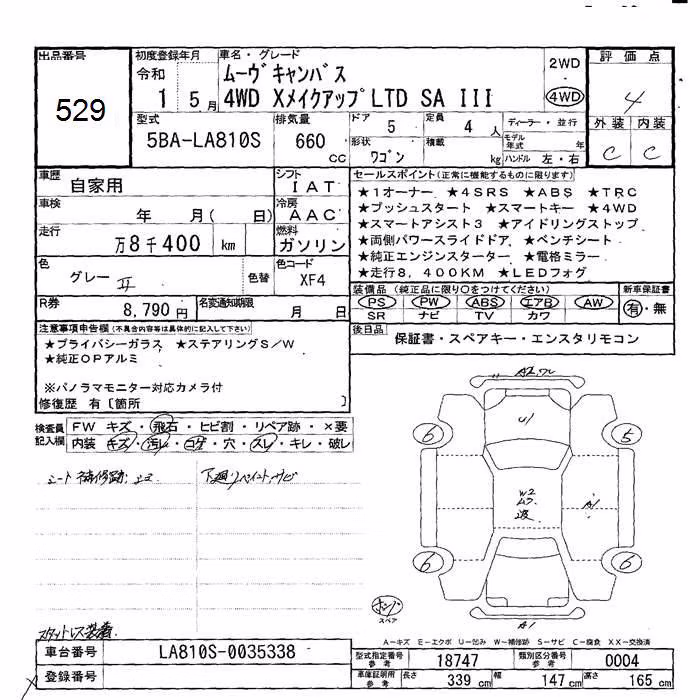 出品番号
529
初度登録年月
令和
1 5月
車名・グレード
ムーヴキャンバス
4WD XメイクアップLTD SA III
2WD
4WD
評価点
4
外装 内装
C C
型式
5BA-LA810S
排気量
660
cc
ドア
5
定員
4 人
形状
ワゴン
積載
kg
ディーラー・並行
モデル年式 年
ハンドル 左・右
車歴
自家用
シフト
IAT
車検
年 月( 日)
冷房
AAC
走行
万8千400 km
燃料
ガソリン
色
グレー II
色替
色コード
XF4
R券
8,790円
名変通知期限
月 日
セールスポイント(正常に機能するものに限ります)
★1オーナー ★4SRS ★ABS ★TRC
★プッシュスタート ★スマートキー ★4WD
★スマートアシスト3 ★アイドリングストップ
★両側パワースライドドア ★ベンチシート
★純正エンジンスターター ★電格ミラー
★走行8,400KM ★LEDフォグ
装備品 (純正品に限り○をつけてください)
PS PW ABS エアB AW
SR ナビ TV カワ
新車保証書
有・無
後日品
保証書・スペアキー・エンスタリモコン
注意事項申告欄(不具合内容等は具体的に記入して下さい)
★プライバシーガラス ★ステアリングS/W
★純正OPアルミ
※パノラマモニター対応カメラ付
修復歴 有〔箇所 〕
検査員記入欄
FW キズ・飛石・ヒビ割・リペア跡・×要
内装 キズ・汚レ・コゲ・穴・スレ・キレ・破レ
シート補修跡
下廻りペイント、サビ
スタットレス装着
A2 ワレ
U1
6 5
W2
波
A1
6 6
スペア
A1
A-キズ E-エクボ U-凹み W-補修跡 S-サビ C-腐食 XX-交換済
車台番号
LA810S-0035338
登録番号
型式指定番号
参考
18747
類別区分番号
参考
0004
車庫証明用
参考
長さ
339 cm
幅
147 cm
高さ
165 cm